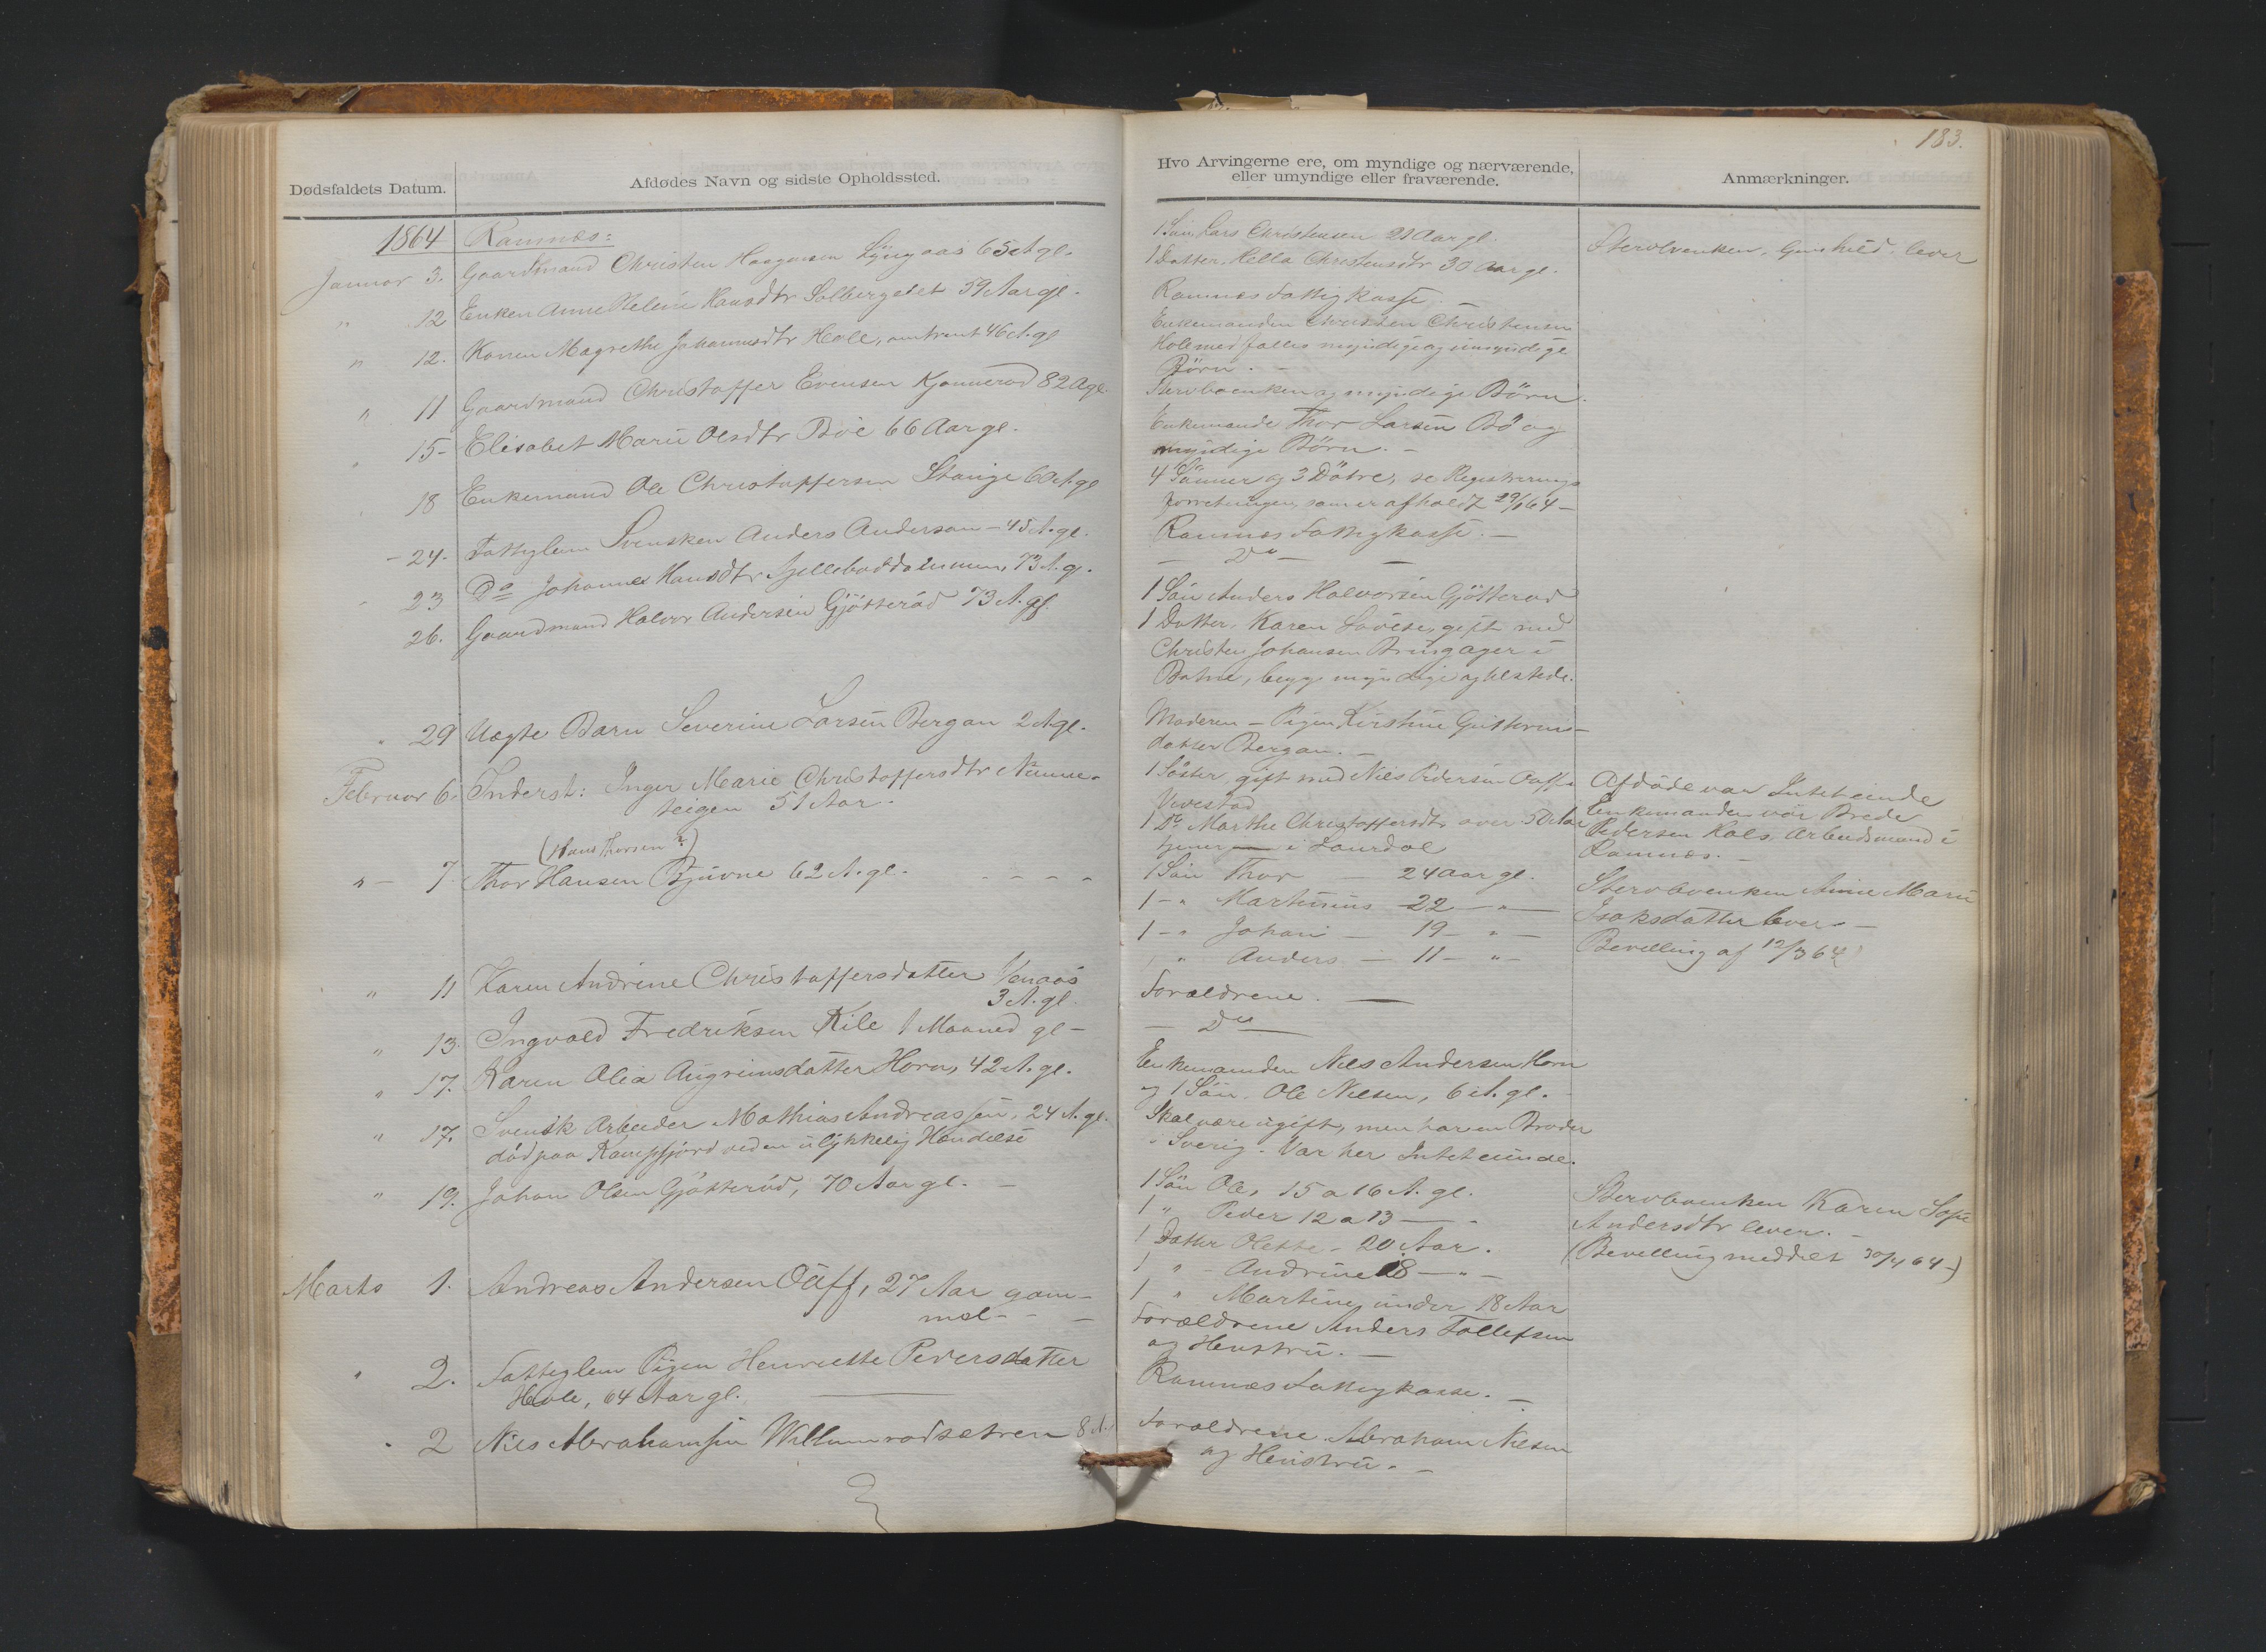 183.
Dødsfaldets Datum.
Afdødes Navn og sidste Opholdssted.
1864 Ramnæs:
Januar 3. Gaardmand Christen Haagensen Lyngaas 65 A gl.
" 12 Enken Anne Helene Hansdtr Solbergeiet 59 Aar gl.
" 12. Konen Magrethe Johannesdtr Hole, omtrent 46 A. gl
" 11 Gaardmand Christoffer Evensen Kjonnerød 82 A gl.
" 15- Elisabet Marie Olsdtr Böe 66 Aar gl.
18 Enkemand Ole Christoffersen Stange 60 A. gl
- 24. Fattiglem Svensken Anders Anderson - 45 A. gl.
" 23 Do Johanne Hansdtr 73 A. g.
26. Gaardmand Halvor Andersen Gjötteröd 73 A. gl.
" 29 Uægte Barn Severine Larsen Bergan 2 A gl.
Februar 6. Inderst: Inger Marie Christoffersdtr Nunne-
teigen 51 Aar.
(Hans Thorsen?)
" - 7. Thor Hansen Bjuvne 62 A. gl. - - - -
" 11 Karen Andrine Christoffersdatter Venaas
3 A. gl.
" 13. Ingvald Fredriksen Kile 1 Maaned gl -
" 17. Karen Olea Angrimsdatter Horn, 42 A. gl.
" 17. Svensk Arbeider Mathias Andreassen, 24 A. gl.
död paa ved en ulykkelig Hændelse
" 19. Johan Olsen Gjötteröd, 70 Aar gl. -
Marts 1. Andreas Andersen Oüff, 27 Aar gam-
mel - - -
" 2. Fattiglem Pigen Henriette Pedersdatter
Hole, 64 Aar gl.
" 2 Nils Abrahamsen Willumrødsetren 8 A.
Hvo Arvingerne ere, om myndige og nærværende,
eller umyndige eller fraværende.
1 Sön Lars Christensen 21 Aar gl.
1 Datter, Hella Christensdtr 30 Aar gl.
Ramnæs Fattigkasse -
Enkemanden Christen Christensen
Hole med fælles myndige og umyndige
Börn. -
Stervboenken og myndige Börn.
Enkemand Thor Larsen Bö og
myndige Börn. -
4 Sönner og 3 Dötre, se Registrerings
forretningen, som er afholdt 29/1 64 -
Ramnæs Fattigkasse. -
- Do - -
1 Sön Anders Halvorsen Gjötterød
1 Datter, Karen Lovise, gift med
Christen Johansen Bringager i
Botne, begge myndige og tilstede.
Moderen - Pigen Kirstine Guttorms-
datter Bergan. -
1 Söster, gift med Nils Pedersen Oüff
Vivestad
1 Do Marthe Christoffersdtr over 50 Aar
tjener i Laurdal
1 Sön Thor - 24 Aar gl.
1 - " Martinius - 22 - " -
1 - " Johan - 19 - " -
" Anders - 11 - " -
Forældrene. -
- Do
Enkemanden Nils Andersen Horn
og 1 Sön, Ole Nilsen, 6 A. gl. -
Skal være ugift, men har en Broder
i Sverig. Var her Intet eiende.
1 Sön Ole, 15 a 16 A. gl.
1 " Peder 12 a 13 - "
1 Datter Olette - 20 Aar.
1 " - Andrine 18 - " -
1 " Martine, under 18 Aar
Forældrene Anders Tollefsen
og Hustru. -
Ramnæs Fattigkasse. -
Forældrene Abraham Nilsen
og Hustru. -
Anmærkninger.
Stervboenken, Gunhild, lever
Afdöde var Intet eiende
Enkemanden var Brede
Pedersen Kals, Arbeidsmand i
Ramnæs. -
Stervboenken Anne Marie
Isaksdatter lever -
Bevilling af 12/3 64
Stervboenken Karen Sofie
Andersdtr lever. -
(Bevilling meddelt 30/4 64 -)